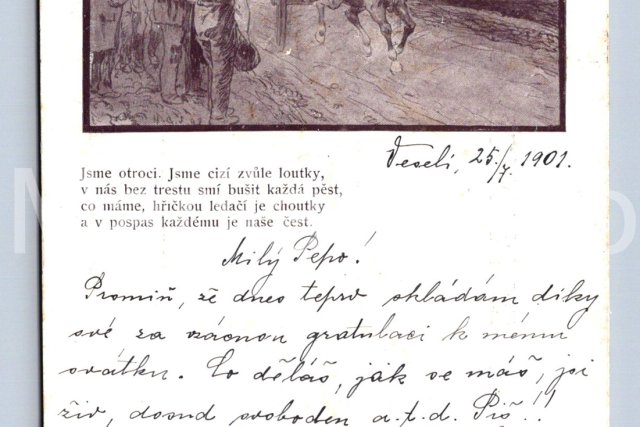 Jsme otroci. Jsme cizí zvůle loutky,
v nás bez trestu smí bušit každá pěst,
co máme, hříčkou ledačí je choutky
a v pospas každému je naše čest.
Veselí, 25./7. 1901.
Milý Pepo!
Promiň, že dnes teprv skládám díky
své za vzácnou gratulaci k mému
svátku. Co děláš, jak se máš, jsi
živ, dosud svoboden a.t.d. Piš!!